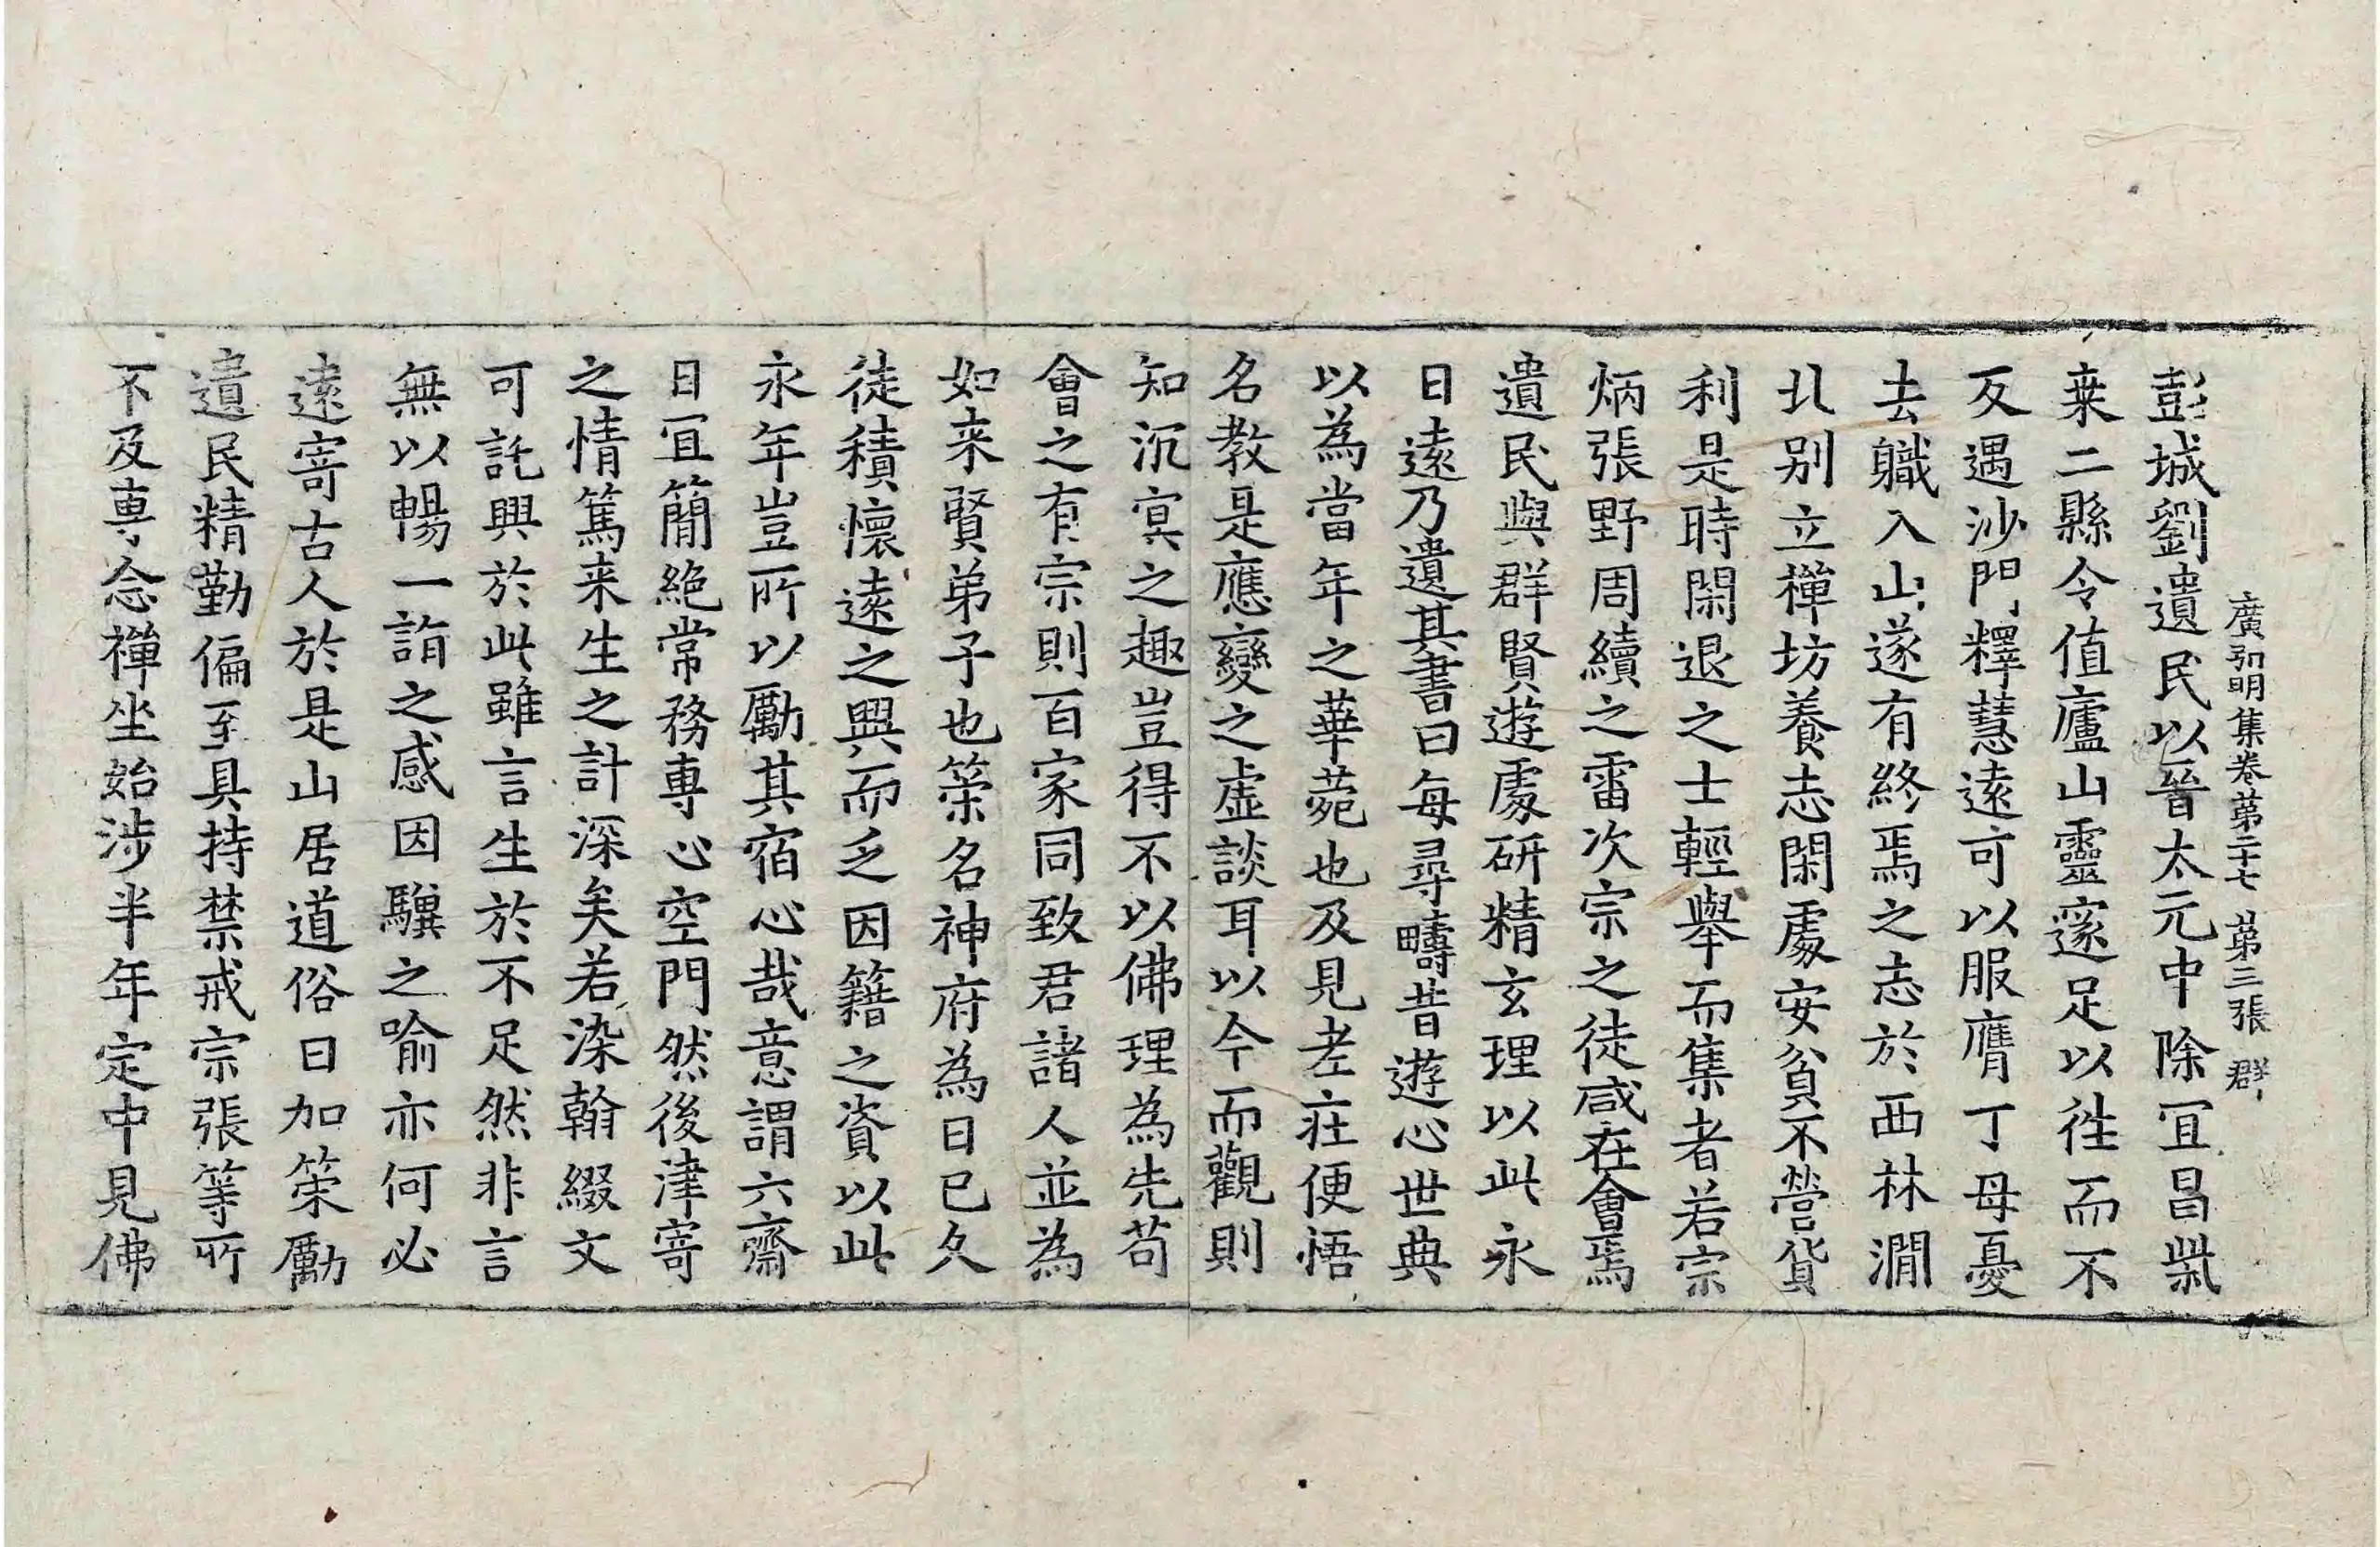 廣弘明集卷第二十七　第三張　群
彭城劉遺民以晉太元中除冝昌柴
桒二縣令值廬山靈邃足以徃而不
反遇沙門釋慧遠可以服膺丁母憂
去職入山遂有終焉之志於西林澗
北别立禪坊養志閑處安貧不營貨
利是時閑退之士輕舉而集者若宗
炳張野周續之雷次宗之徒咸在會焉
遺民與群賢遊處研精玄理以此永
日遠乃遺其書曰每尋疇昔遊心世典
以為當年之華菀也及見老莊便悟
名教是應變之虛談耳以今而觀則
知沉冥之趣豈得不以佛理為先苟
會之有宗則百家同致君諸人並為
如来賢弟子也策名神府為日已久
徒積懷遠之興而乏因籍之資以此
永年豈所以勵其宿心哉意謂六齋
日冝簡絶常務專心空門然後津寄
之情篤来生之計深矣若染翰綴文
可託興於此雖言生於不足然非言
無以暢一詣之感因驥之喻亦何必
遠寄古人於是山居道俗日加策勵
遺民精勤偏至具持禁戒宗張等所
不及專念禪坐始涉半年定中見佛